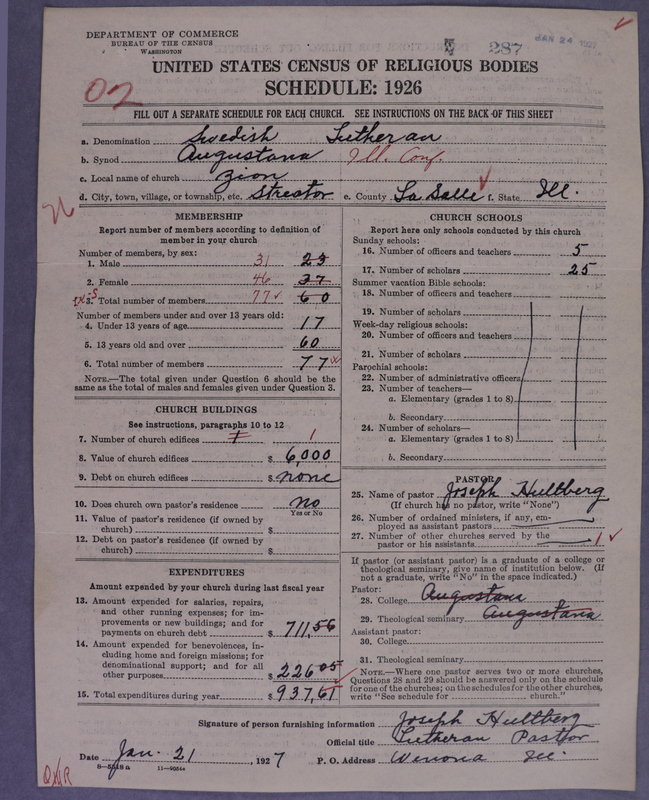 DEPARTMENT OF COMMERCE
BUREAU OF THE CENSUS
WASHINGTON
287
JAN 24 1927
UNITED STATES CENSUS OF RELIGIOUS BODIES
SCHEDULE: 1926
02
FILL OUT A SEPARATE SCHEDULE FOR EACH CHURCH. SEE INSTRUCTIONS ON THE BACK OF THIS SHEET
a. Denomination Swedish Lutheran
b. Synod Augustana Ill. Conf.
c. Local name of church Zion
d. City, town, village, or township, etc. Streator e. County La Salle f. State Ill.
MEMBERSHIP
Report number of members according to definition of
member in your church
Number of members, by sex:
1. Male 31 23
2. Female 46 37
3. Total number of members 77 60
Number of members under and over 13 years old:
4. Under 13 years of age 17
5. 13 years old and over 60
6. Total number of members 77
NOTE.—The total given under Question 6 should be the
same as the total of males and females given under Question 3.
CHURCH BUILDINGS
See instructions, paragraphs 10 to 12
7. Number of church edifices 1
8. Value of church edifices $ 6,000
9. Debt on church edifices $ none
10. Does church own pastor's residence no
Yes or No
11. Value of pastor's residence (if owned by
church) $
12. Debt on pastor's residence (if owned by
church) $
EXPENDITURES
Amount expended by your church during last fiscal year
13. Amount expended for salaries, repairs,
and other running expenses; for im-
provements or new buildings; and for
payments on church debt $ 711,56
14. Amount expended for benevolences, in-
cluding home and foreign missions; for
denominational support; and for all
other purposes $ 226 05
15. Total expenditures during year $ 937,61
CHURCH SCHOOLS
Report here only schools conducted by this church
Sunday schools:
16. Number of officers and teachers 5
17. Number of scholars 25
Summer vacation Bible schools:
18. Number of officers and teachers
19. Number of scholars
Week-day religious schools:
20. Number of officers and teachers
21. Number of scholars
Parochial schools:
22. Number of administrative officers
23. Number of teachers—
a. Elementary (grades 1 to 8)
b. Secondary
24. Number of scholars—
a. Elementary (grades 1 to 8)
b. Secondary
PASTOR
25. Name of pastor Joseph Hultberg
(If church has no pastor, write "None")
26. Number of ordained ministers, if any, em-
ployed as assistant pastors
27. Number of other churches served by the
pastor or his assistants 1
If pastor (or assistant pastor) is a graduate of a college or
theological seminary, give name of institution below. (If
not a graduate, write "No" in the space indicated.)
Pastor:
28. College Augustana
29. Theological seminary Augustana
Assistant pastor:
30. College
31. Theological seminary
NOTE.—Where one pastor serves two or more churches,
Questions 28 and 29 should be answered only on the schedule
for one of the churches; on the schedules for the other churches,
write "See schedule for church."
Signature of person furnishing information Joseph Hultberg
Official title Lutheran Pastor
Date Jan. 21, 1927 P. O. Address Wenona Ill.
11—9054a